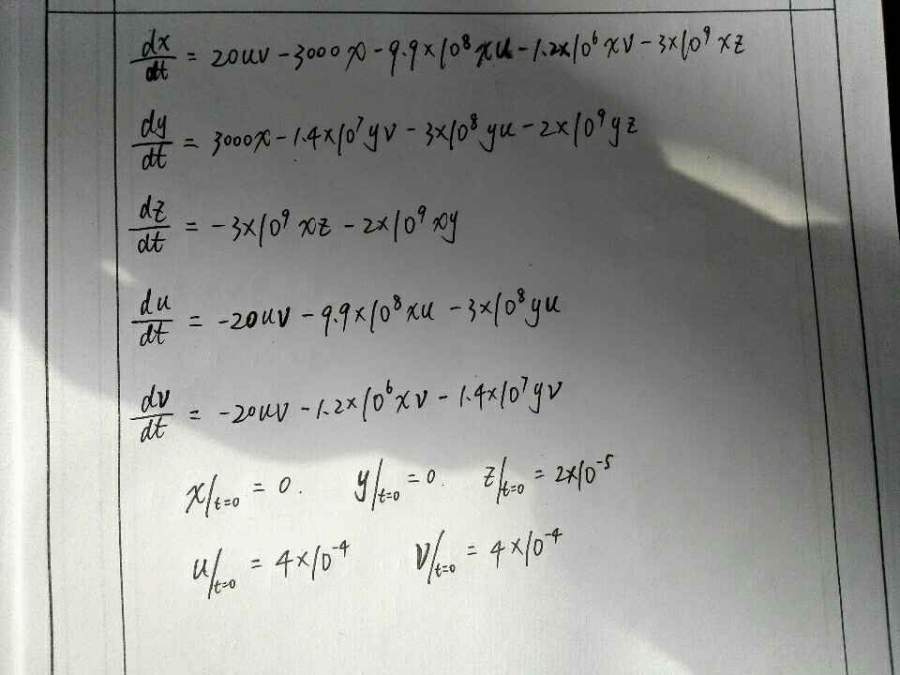 dx/dt = 20uv - 3000x - 9.9×10⁸xu - 1.2×10⁶xv - 3×10⁹xz
dy/dt = 3000x - 1.4×10⁷yv - 3×10⁸yu - 2×10⁹yz
dz/dt = -3×10⁹xz - 2×10⁹xy
du/dt = -20uv - 9.9×10⁸xu - 3×10⁸yu
dv/dt = -20uv - 1.2×10⁶xv - 1.4×10⁷yv
x|t=0 = 0. y|t=0 = 0. z|t=0 = 2×10⁻⁵
u|t=0 = 4×10⁻⁴ v|t=0 = 4×10⁻⁴